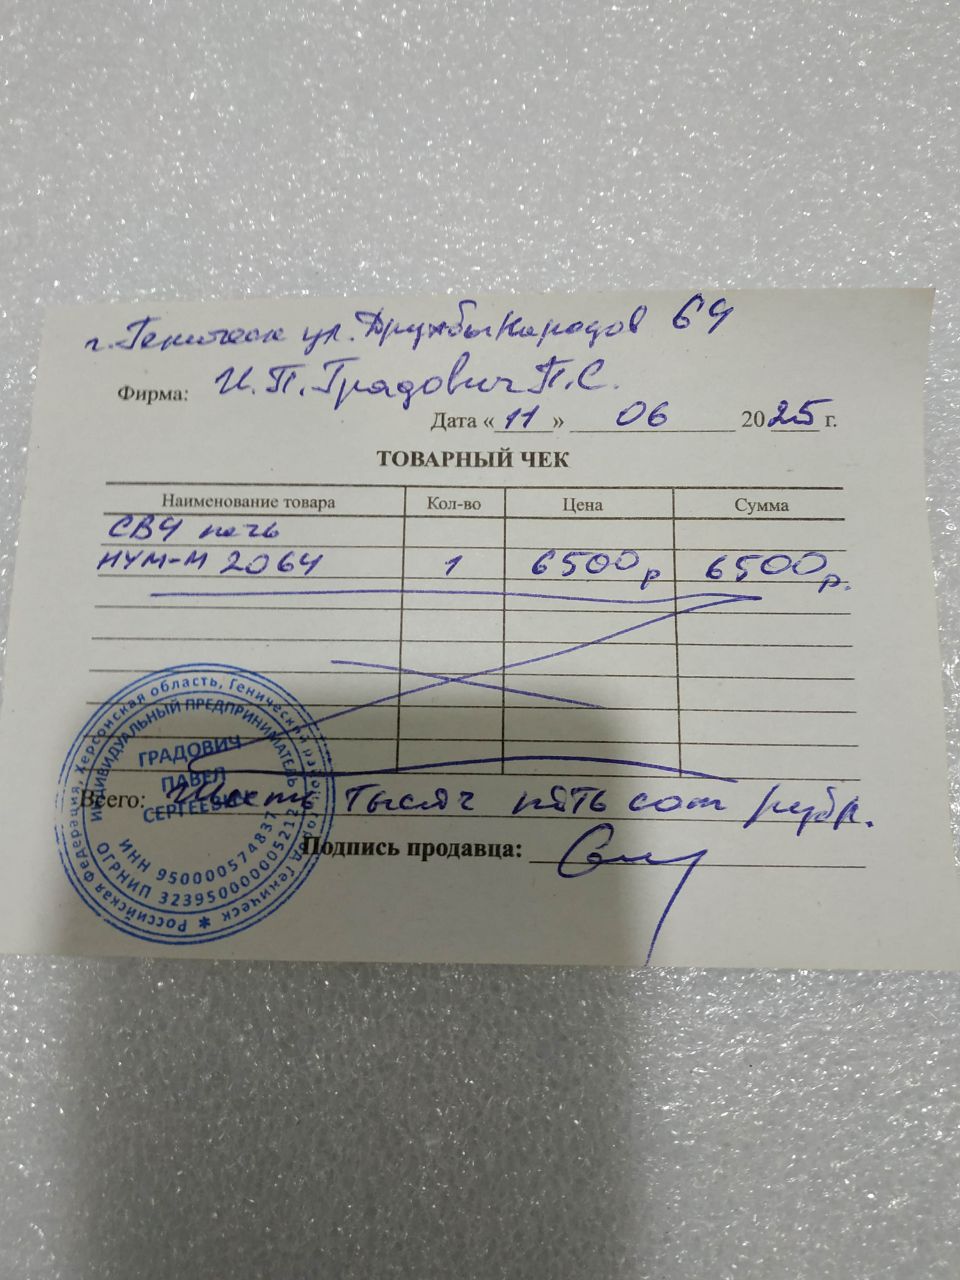 г. Геническ ул. Дружбы Народов 64
Фирма: И.П. Градович П.С.
Дата «11» 06 2025 г.
ТОВАРНЫЙ ЧЕК
Наименование товара Кол-во Цена Сумма
СВЧ печь
HYM-M 2064 1 6500р 6500р.
Всего: Шесть тысяч пять сот рубл.
Подпись продавца:
Российская Федерация, Херсонская область, Генический район, город Геническ
ИНДИВИДУАЛЬНЫЙ ПРЕДПРИНИМАТЕЛЬ
ГРАДОВИЧ
ПАВЕЛ
СЕРГЕЕВИЧ
ИНН 950000574837
ОГРНИП 323950000005212